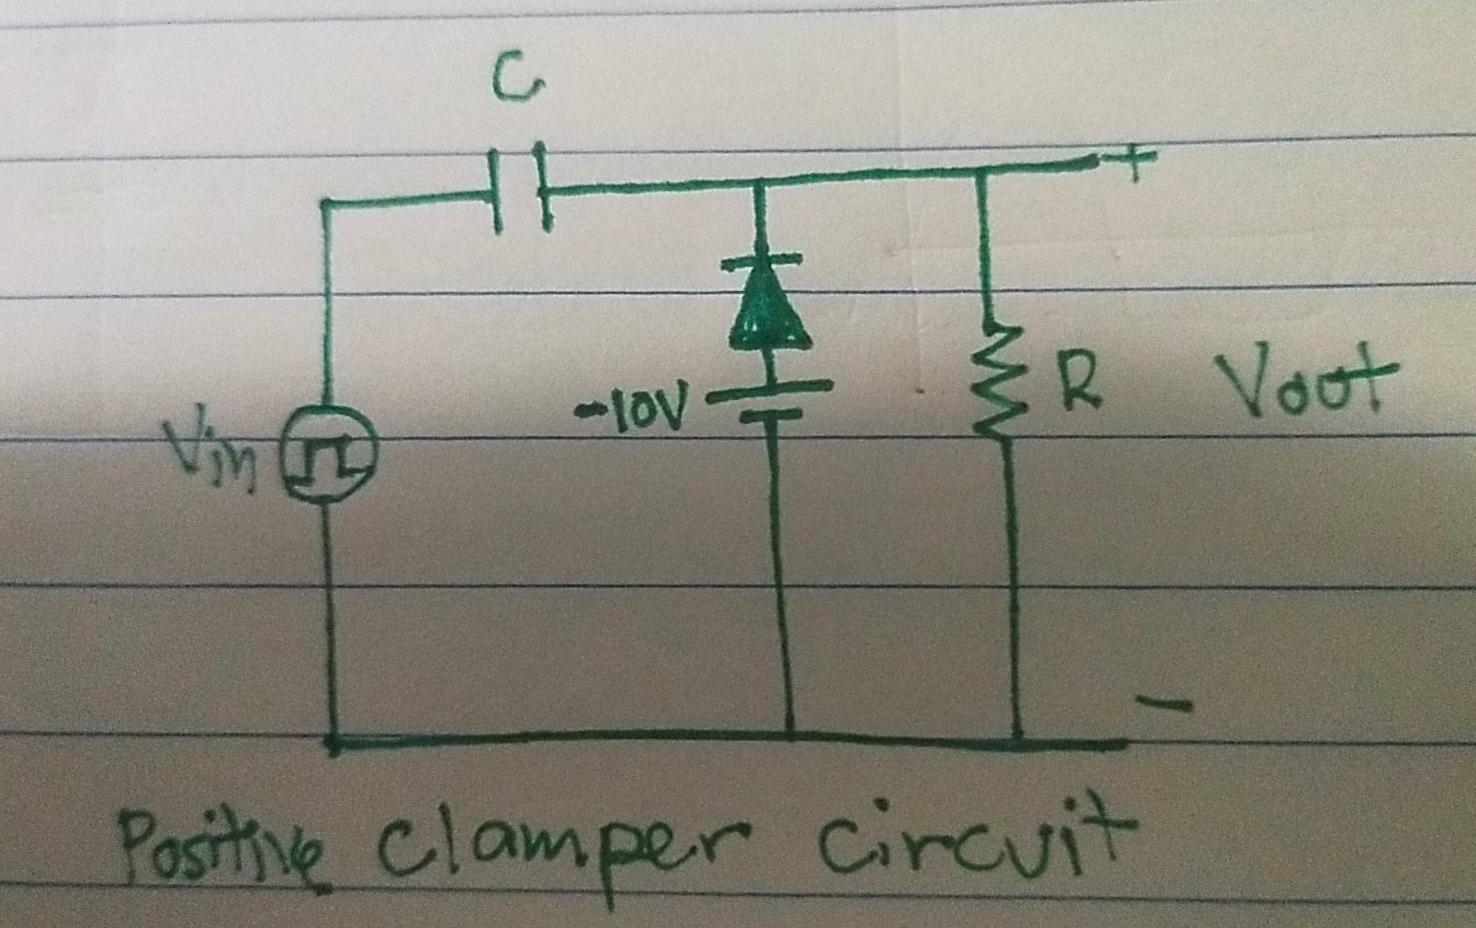 C
+
-10V
R
Voot
Vin
-
Positive clamper circuit